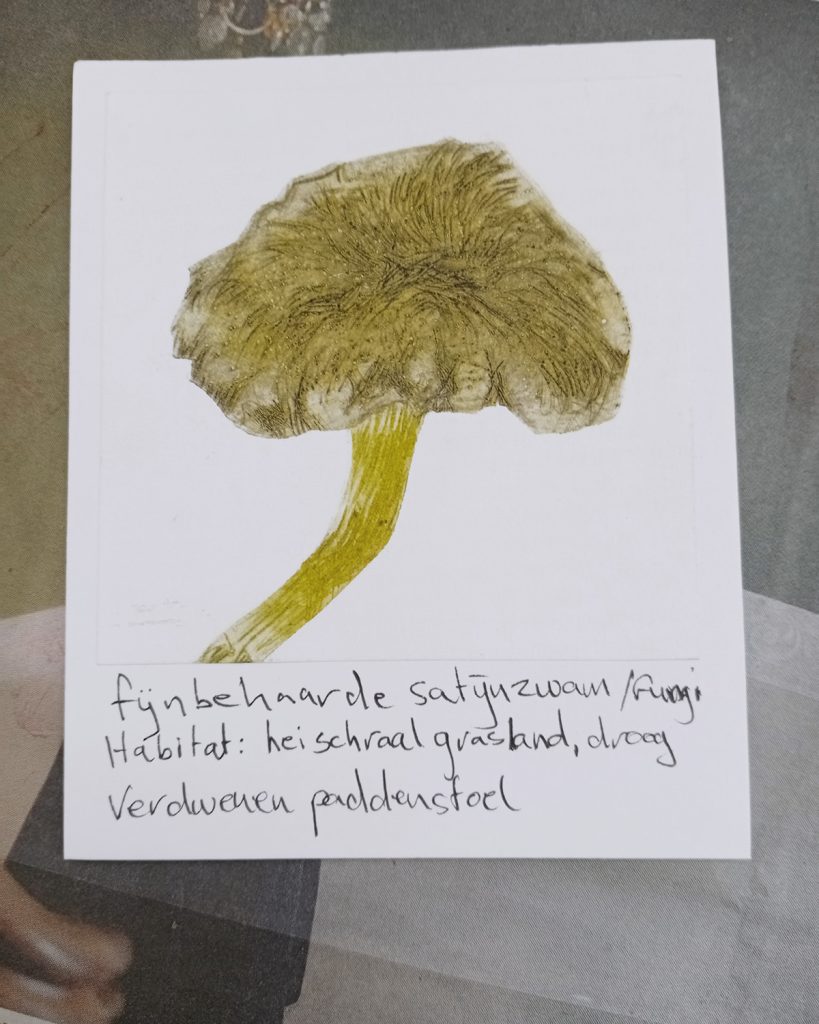 fijnbehaarde satijnzwam /Fungi
Habitat: heischraal grasland, droog
Verdwenen paddenstoel